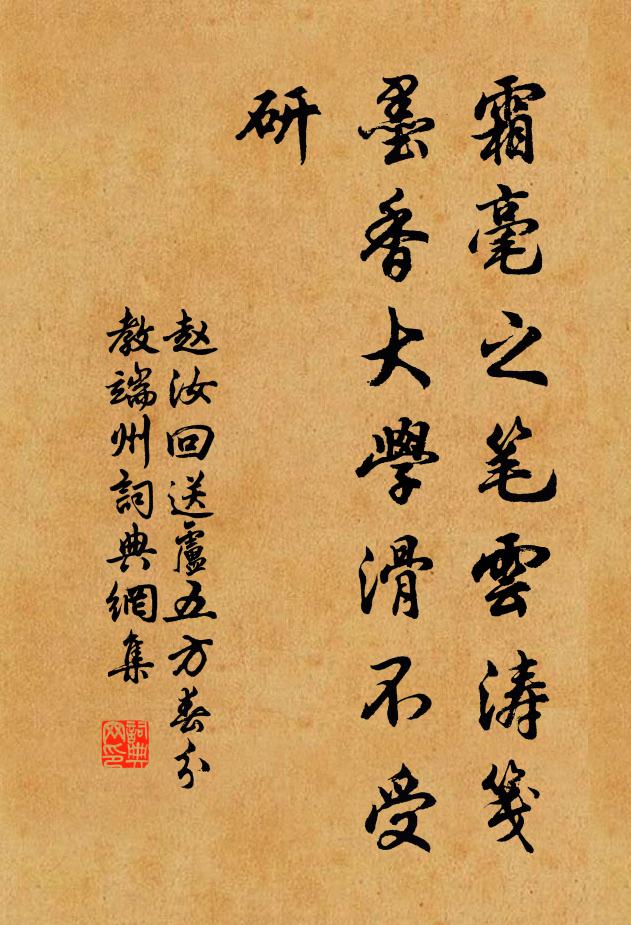 霜毫之笔雲涛箋
墨香大學滑不受
研
赵汝回送盧五方春分
教端州詞典網集
詞典
网印